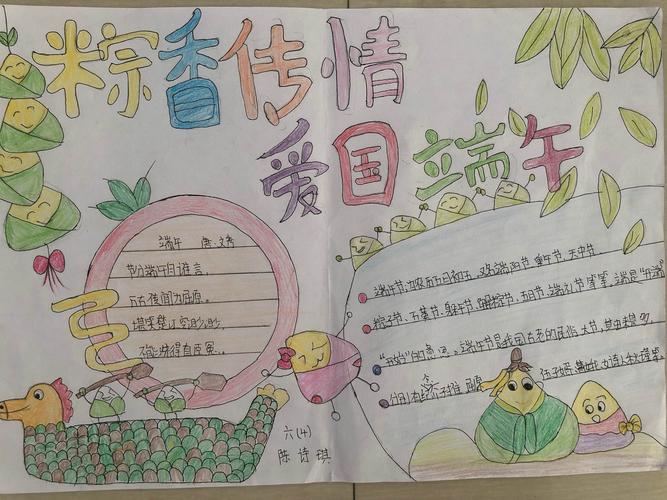 粽香传情
爱国端午
端午 唐·文秀
节分端午自谁言,
万古传闻为屈原。
堪笑楚江空渺渺,
不能洗得直臣冤。
端午节,为农历五月初五,又称端阳节、重午节、天中节
粽子节、五黄节、 节、五月节、端礼节等等。端是“开端”
“开始”的意思。端午节是我国古老的民俗大节,其中
分别有 屈原 伍子胥、
六(4)
陈诗琪